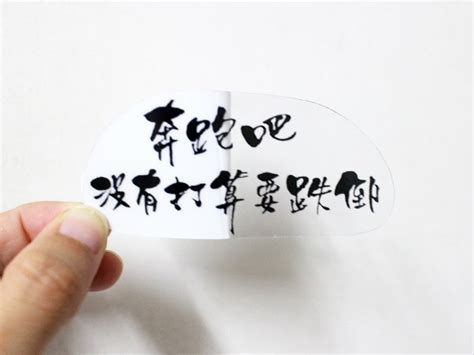 奔跑吧
没有打算要跌倒